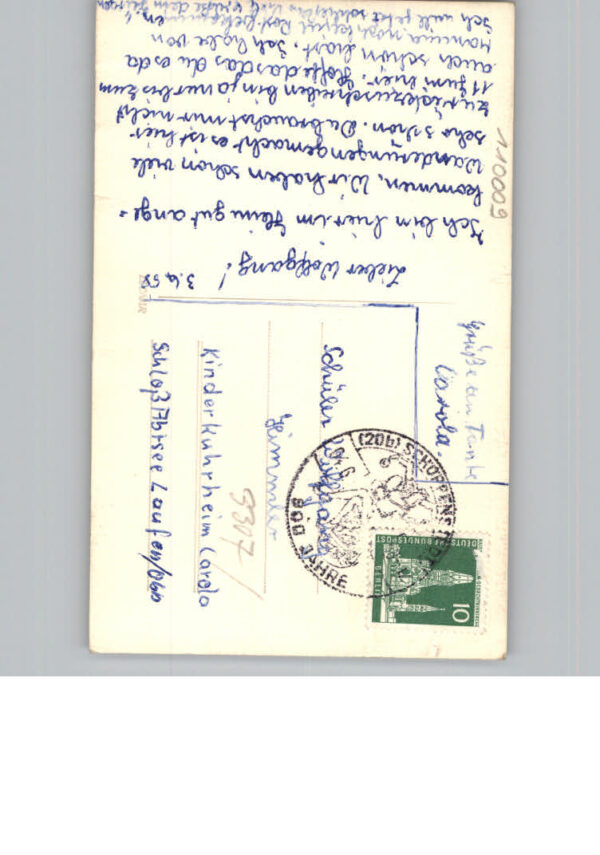 3.6.58
Lieber Wolfgang!
Ich bin hier im Heim gut ange-
kommen, Wir haben schon viele
Wanderungen gemacht es ist hier
sehr schön. Du brauchst mir nicht
zurückzuschreiben bin ja nur bis zum
11 Juni hier. Hoffe das das du es da
auch schön hast. Ich habe von
Mamma noch keine Post bekommen,
Ich will jetzt schließen
Grüße an Tante
Carola.
Schüler Wolfgang
Heimmler
Kinderkuhrheim Carola
Schloß Abtsee Laufen/Obb
900 JAHRE
(20b) SCHÖPPENSTEDT
DEUTSCHE BUNDESPOST
BERLIN
10
110009
9307/